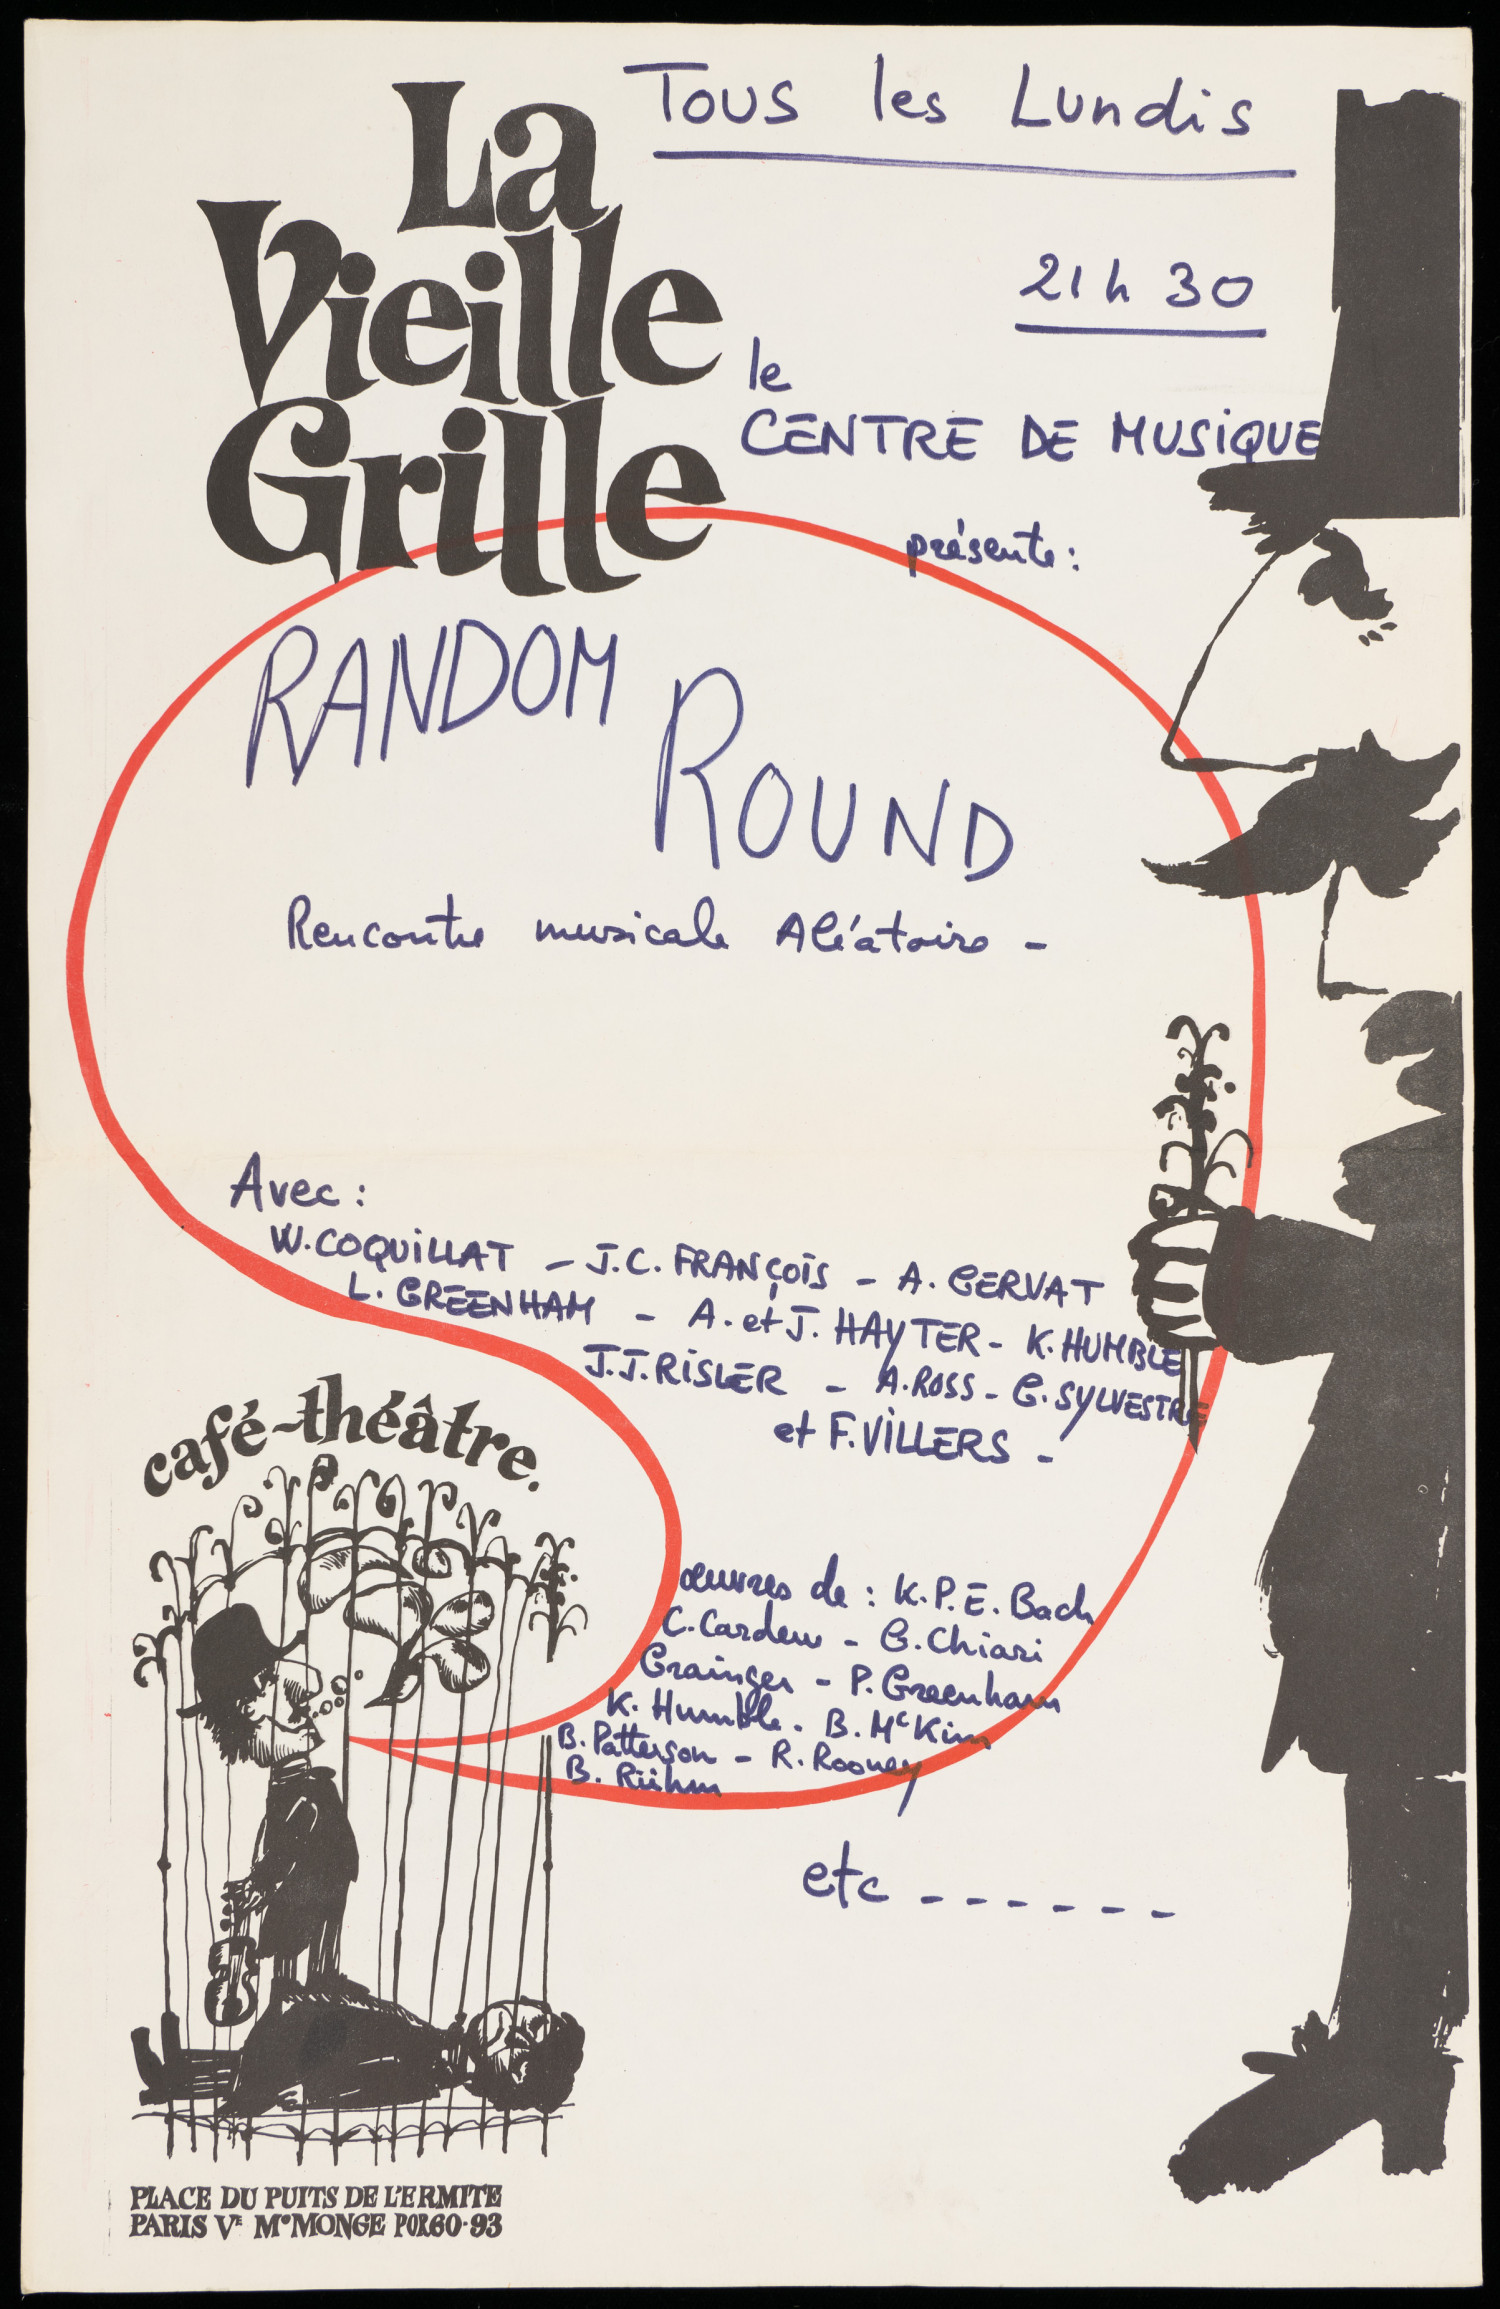 La
Vieille
Grille
Tous les Lundis
21 h 30
le
CENTRE DE MUSIQUE
présente :
RANDOM
ROUND
Rencontre musicale Aléatoire -
Avec :
W. COQUILLAT - J.C. FRANÇOIS - A. GERVAT
L. GREENHAM - A. et J. HAYTER - K. HUMBLE
J.J. RISLER - A. ROSS - G. SYLVESTRE
et F. VILLERS -
œuvres de : K.P.E. Bach
C. Cardew - G. Chiari
Grainger - P. Greenham
K. Humble. B. McKim
B. Patterson - R. Rooney
B. Rühm
etc ------
café-théâtre.
PLACE DU PUITS DE L'ERMITE
PARIS Ve Mo MONGE POR 60-93